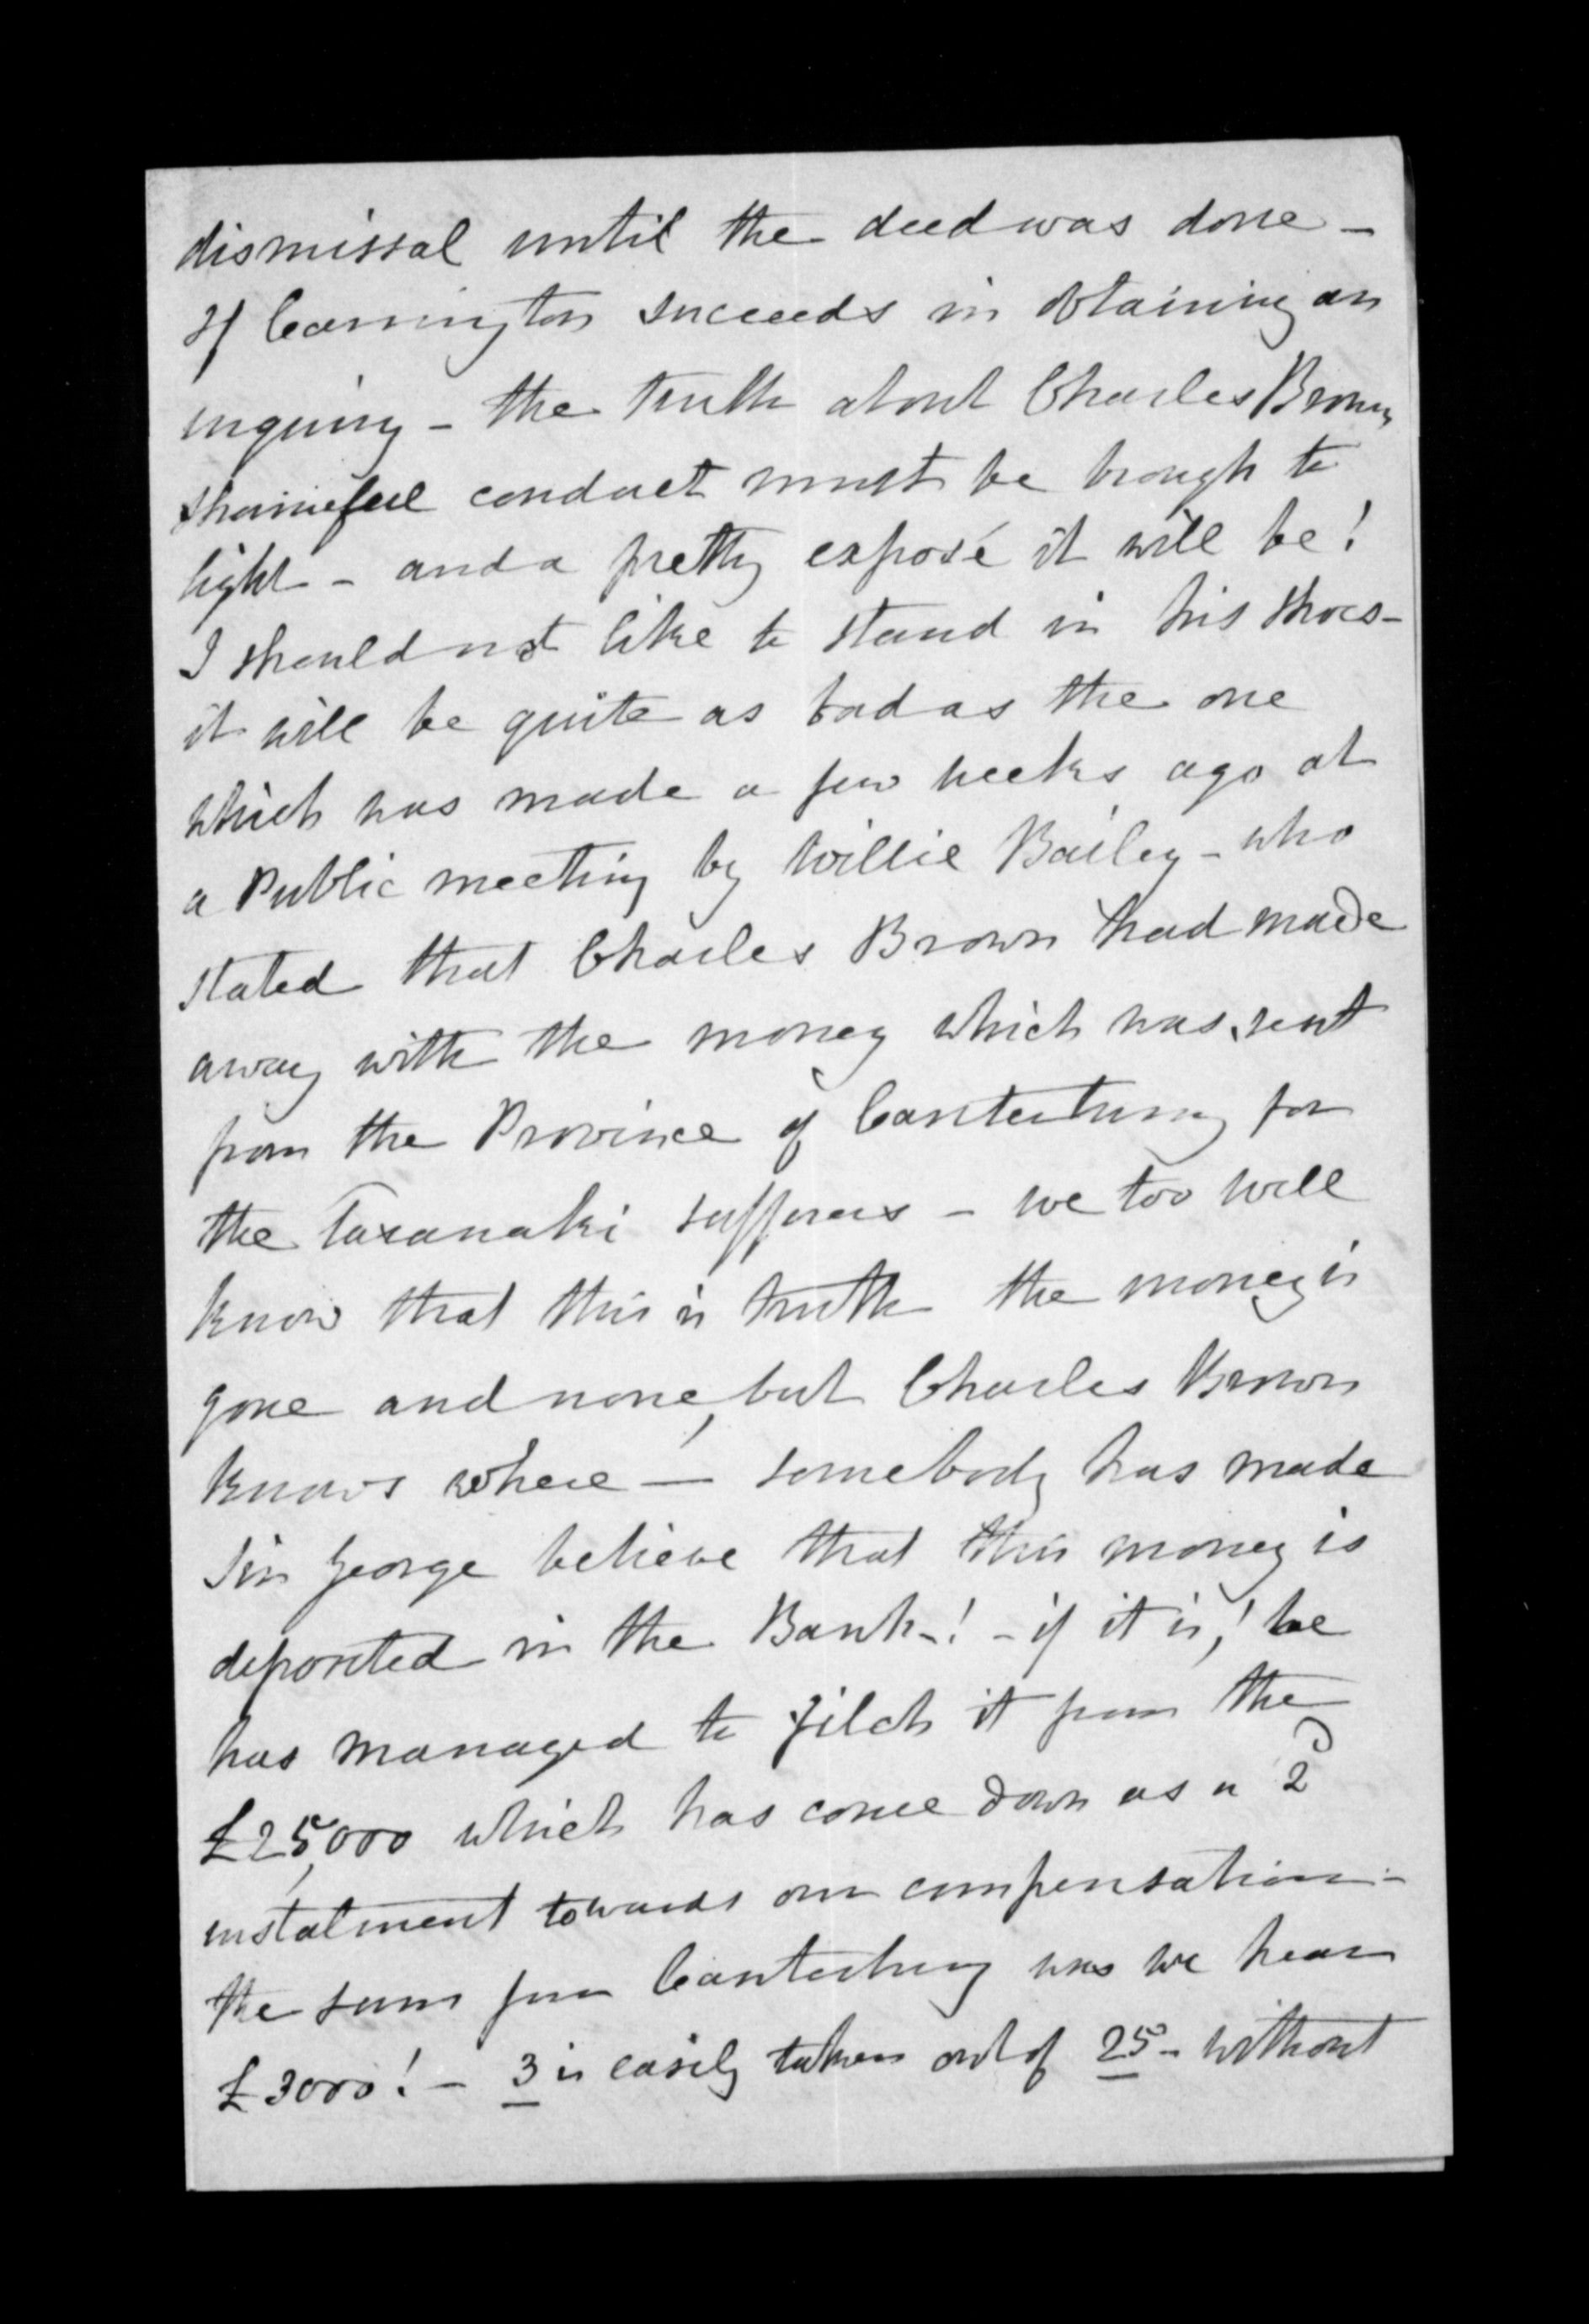 dismissal until the deed was done -
If Carrington succeeds in obtaining an
inquiry - the truth about Charles Browns
shameful conduct must be brough to
light - and a pretty exposé it will be!
I should not like to stand in his shoes -
it will be quite as bad as the one
which was made a few weeks ago at
a Public meeting by Willie Bailey - who
stated that Charles Brown had made
away with the money which was sent
from the Province of Canterbury for
the Taranaki sufferers - we too well
know that this is truth the money is
gone and none, but Charles Brown
knows where — somebody has made
Sir George believe that this money is
deposited in the Bank -! - if it is,! he
has managed to filch it from the
£25,000 which has come down as a 2d
instalment towards our compensation -
the sum from Canterbury was we hear
£3000! - 3 is easily taken out of 25 - without